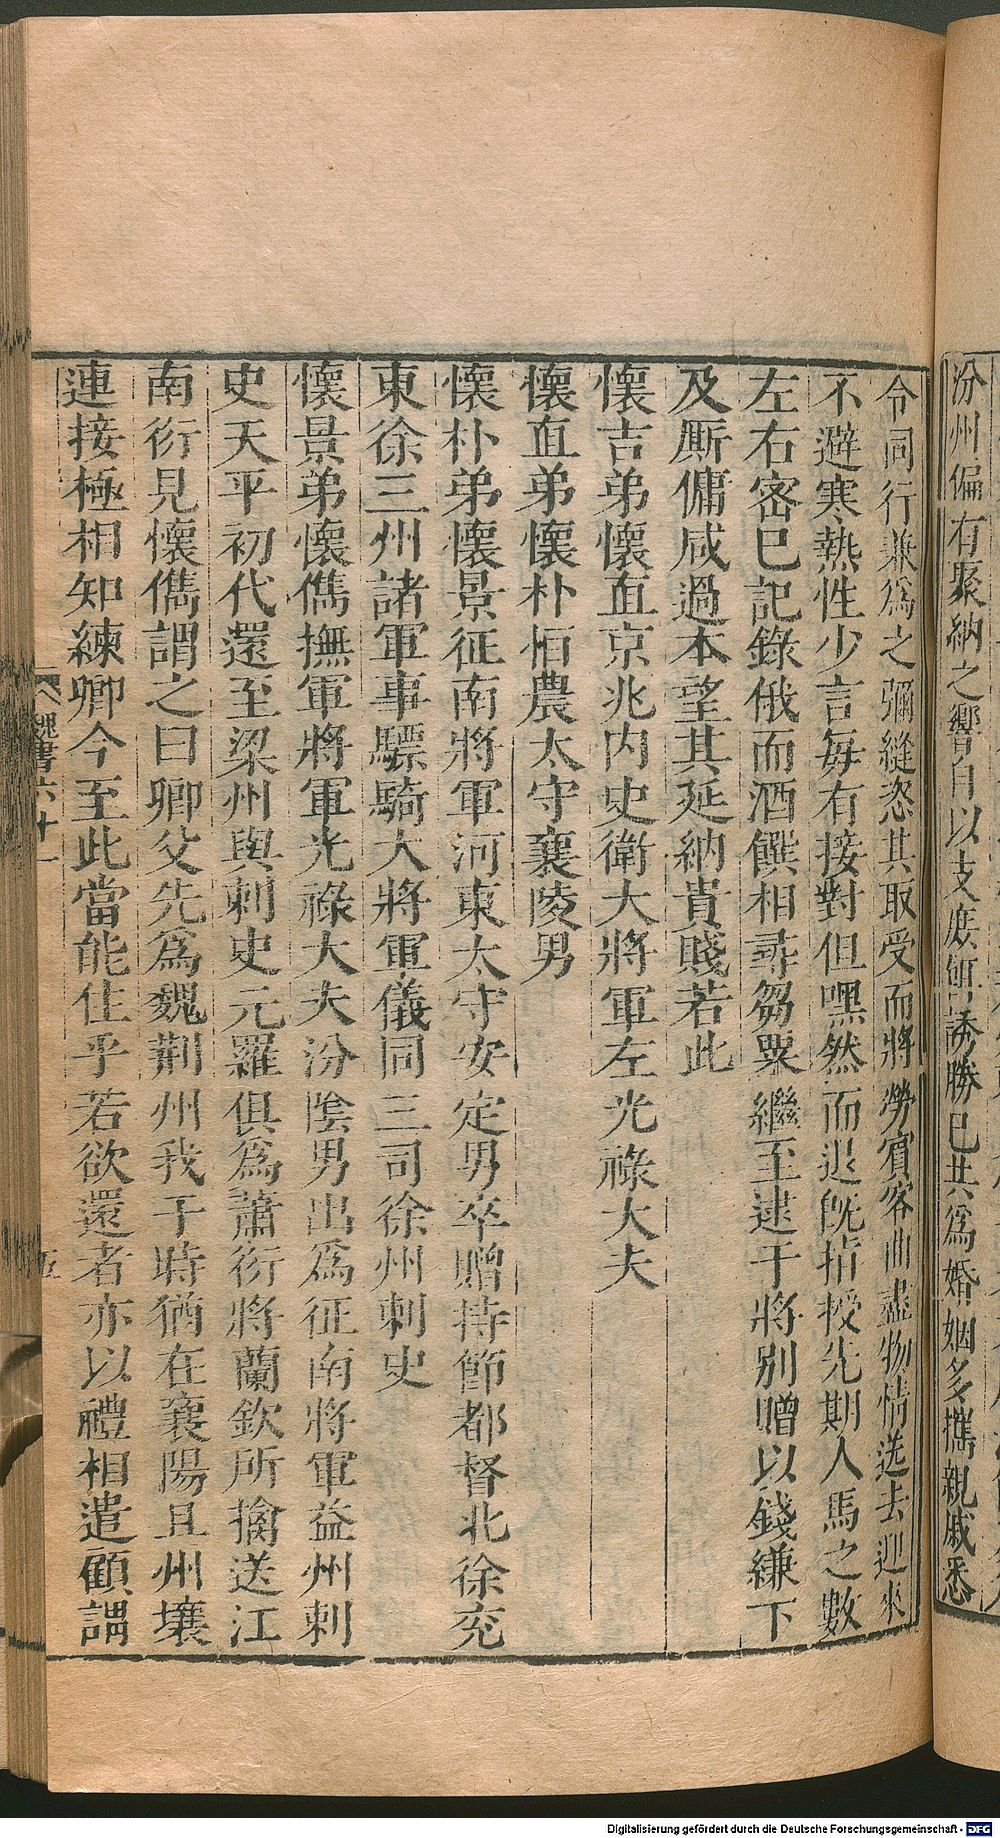 汾州偏有聚納之響自以支庶餌誘勝已共爲婚姻多攜親戚悉
令同行兼爲之彌縫恣其取受而將勞賓客曲盡物情送去迎來
不避寒熱性少言每有接對但嘿然而退旣指授先期人馬之數
左右密已記錄俄而酒饌相尋芻粟繼至逮于將别贈以錢縑下
及厮傭咸過本望其延納貴賤若此
懷吉弟懷直京兆内史衛大將軍左光祿大夫
懷直弟懷朴恒農太守襄陵男
懷朴弟懷景征南將軍河東太守安定男卒贈持節都督北徐兗
東徐三州諸軍事驃騎大將軍儀同三司徐州刺史
懷景弟懷儁撫軍將軍光祿大夫汾陰男出爲征南將軍益州刺
史天平初代還至梁州與刺史元羅俱爲蕭衍將蘭欽所擒送江
南衍見懷儁謂之曰卿父先爲魏荆州我于時猶在襄陽且州壤
連接極相知練卿今至此當能住乎若欲還者亦以禮相遣顧謂
魏書六十一
五
Digitalisierung gefördert durch die Deutsche Forschungsgemeinschaft - DFG